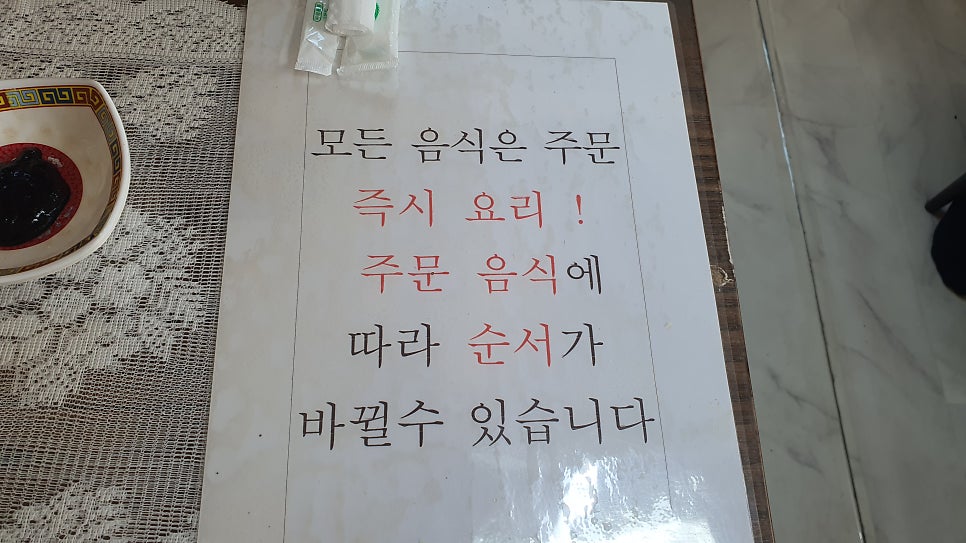 모든 음식은 주문
즉시 요리 !
주문 음식에
따라 순서가
바뀔수 있습니다